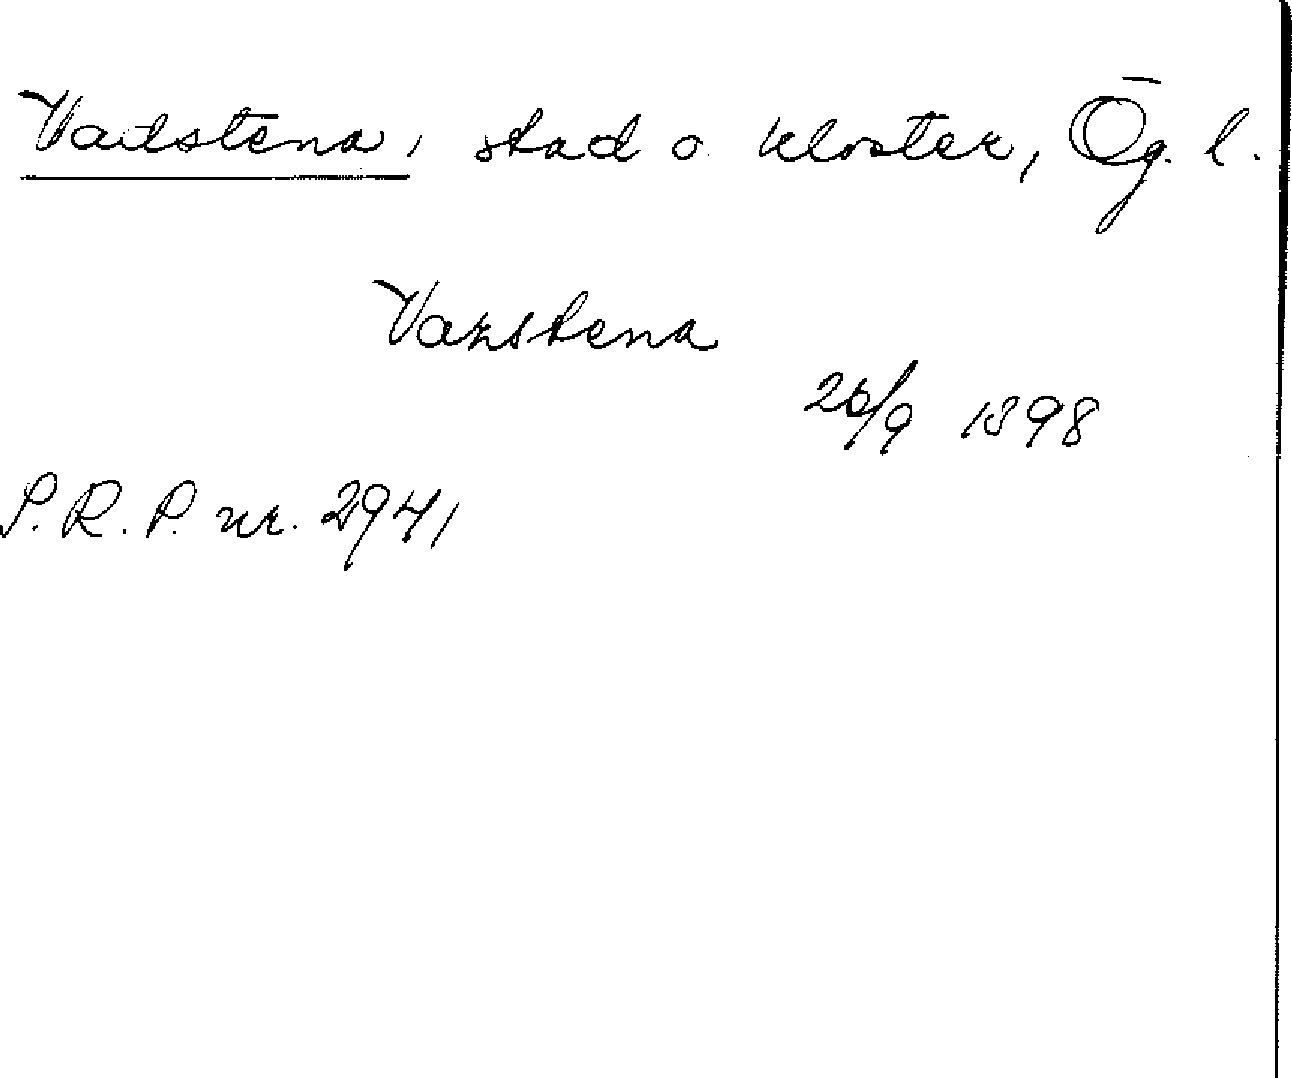 Vadstena, stad o. kloster, Ög. l.
Vazstena
26/9 1398
S.R.P. nr. 2941